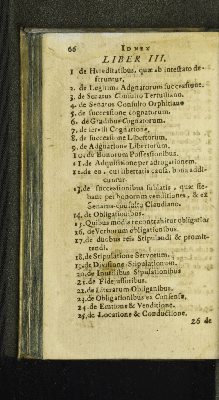 66 IDNEX
LIBER III.
1 de Hæreditatibus, quæ ab intestato de-
feruntur.
2. de Legitima Adgnatorum successione.
3. de Senatus Consulto Tertulliano.
4. de Senatus Consulto Orphitiano
5. de successione cognatorum.
6. de Gradibus Cognatorum.
7. de servili Cognatione,
8. de successione Libertorum.
9. de Adgnatione Libertorum.
10. de Bonorum Possessionibus.
11. de Adquisitione per adrogationem.
12. de eo, cui libertatis causa, bona addi-
cuntur.
13. de successionibus sublatis, quæ fie-
bant per bonorum venditiones, & ex
Senatus-consulto Claudiano.
14. de Obligationibus.
15. Quibus modis re contrahitur obligatio
16. de Verborum obligationibus.
17. de duobus reis Stipulandi & promit-
tendi.
18. de Stipulatione Servorum.
19. de Divisione Stipulationum.
20. de Inutilibus Stipulationibus
21. de Fidejussoribus.
22. de Literarum Obligationibus.
23. de Obligationibus ex Consensu.
24. de Emtione & Venditione.
25. de Locatione & Conductione.
26 de